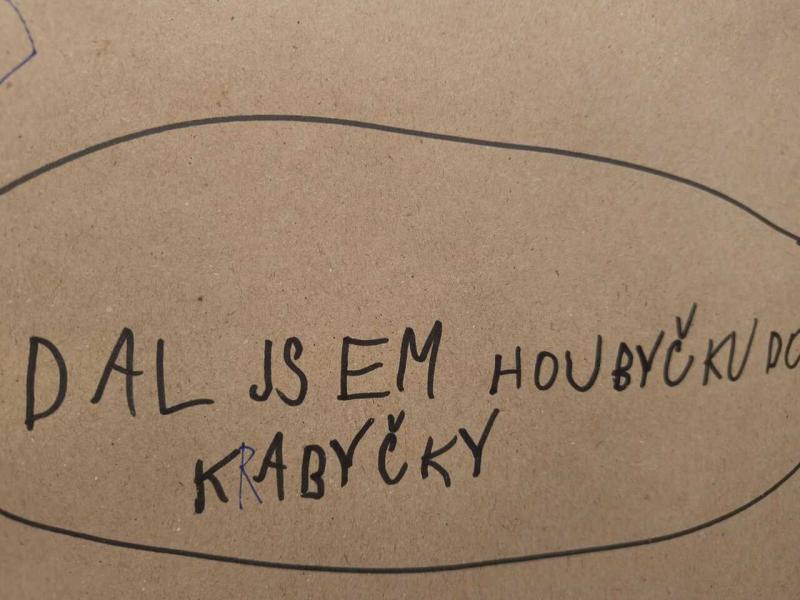 DAL JSEM HOUBYČKU DO
KRABYČKY